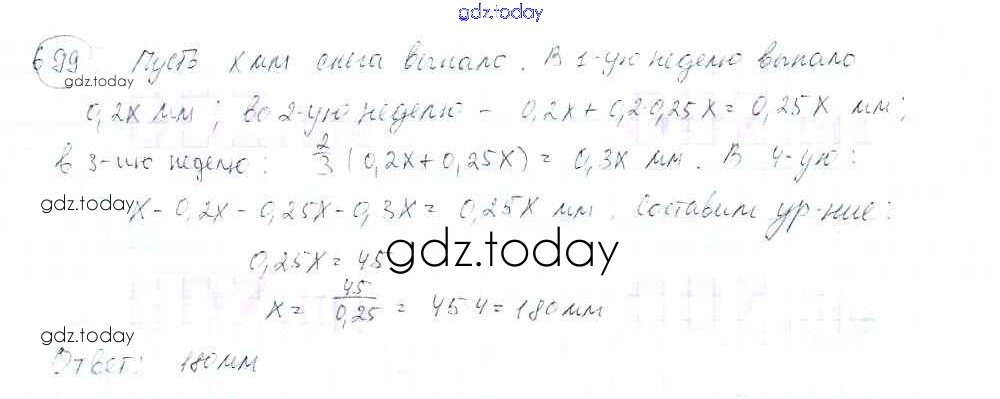 gdz.today
699 Пусть x мм снега выпало. В 1-ую неделю выпало
gdz.today
0,2x мм; во 2-ую неделю - 0,2x + 0,2·0,25x = 0,25x мм;
в 3-ию неделю: 2/3 (0,2x + 0,25x) = 0,3x мм. В 4-ую:
gdz.today
x - 0,2x - 0,25x - 0,3x = 0,25x мм. Составим ур-ние:
0,25x = 45
gdz.today
x = 45/0,25 = 45 4 = 180 мм
gdz.today
Ответ: 180 мм